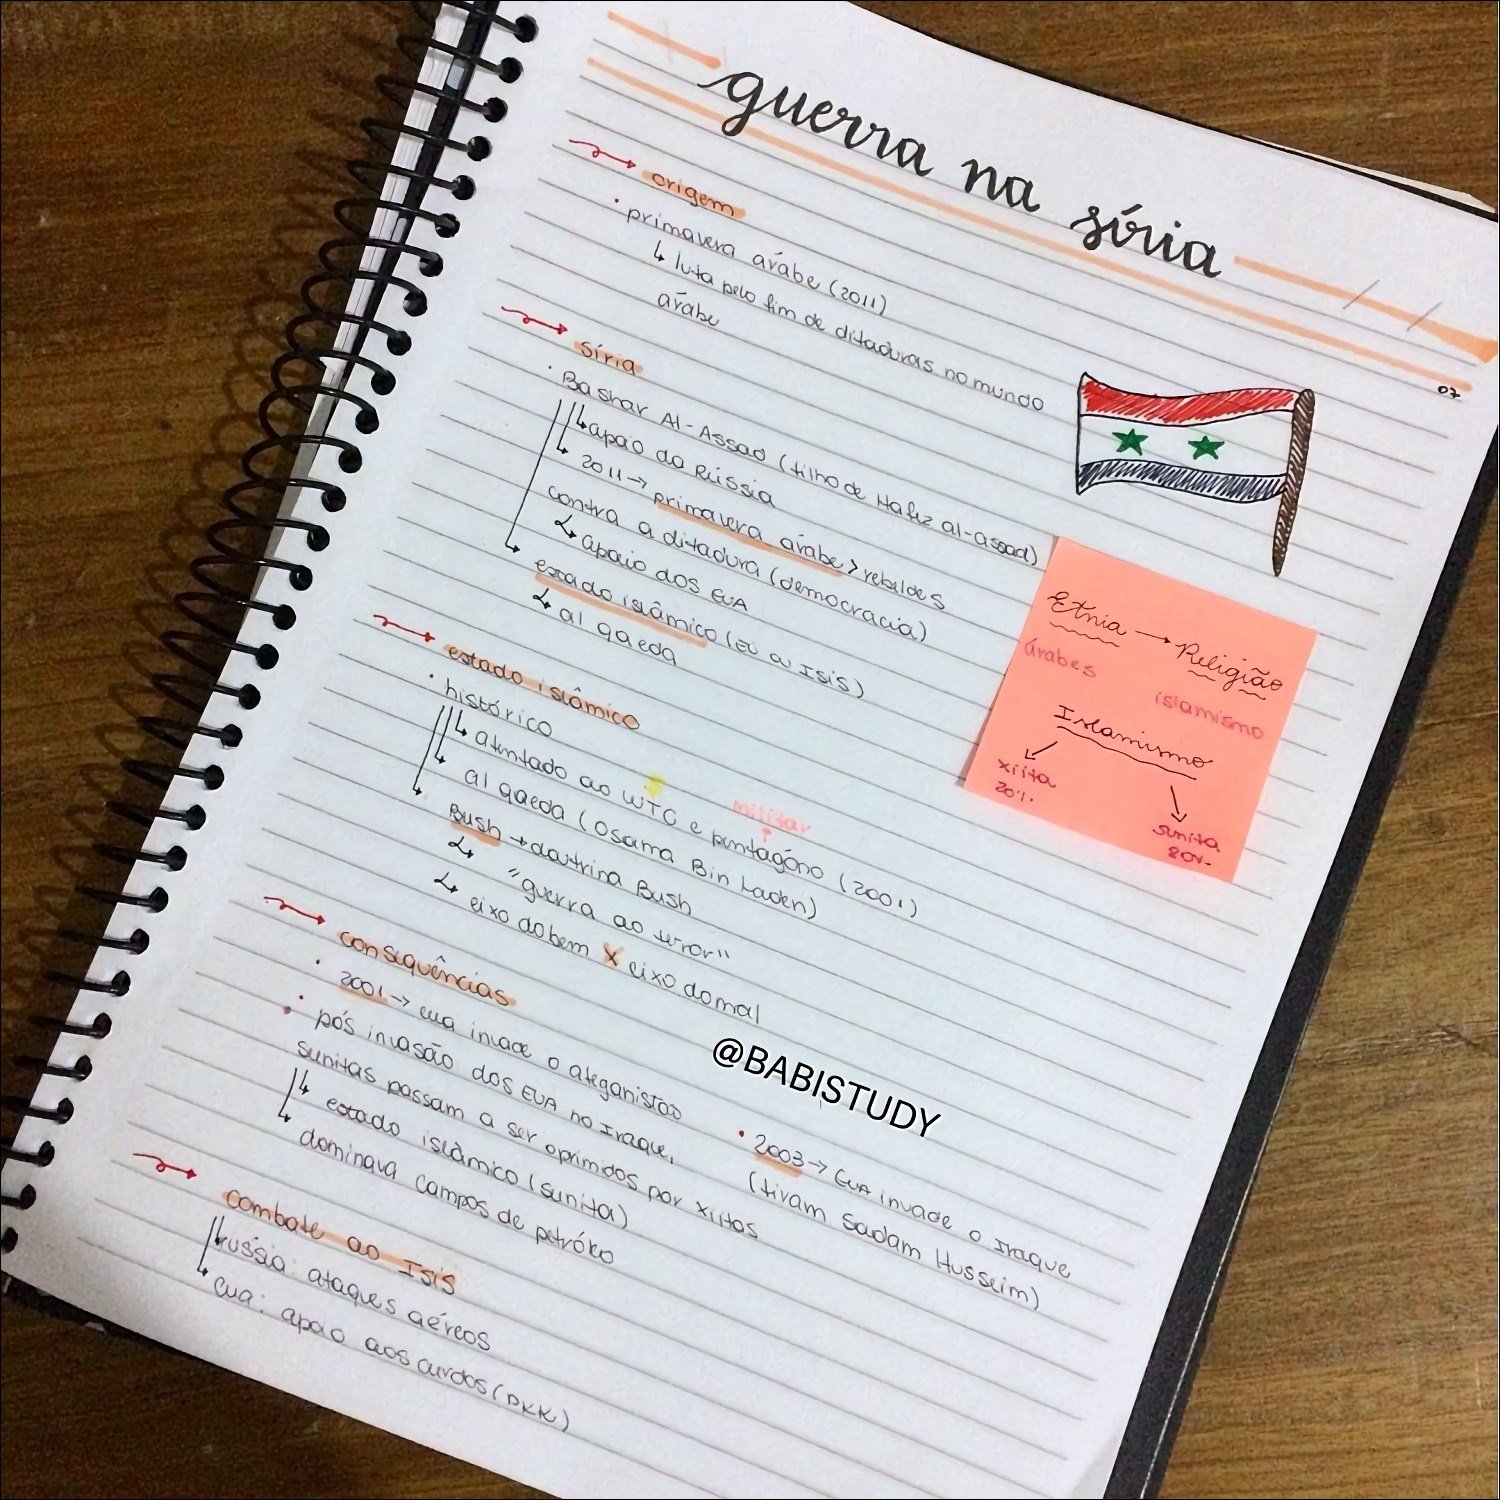 guerra na síria
07
origem
• primavera árabe (2011)
↳ luta pelo fim de ditaduras no mundo
árabe
síria
• Bashar Al-Assad (filho de Hafez al-assad)
↳ apoio da Rússia
↳ 2011 → primavera árabe > rebeldes
contra a ditadura (democracia)
↳ apoio dos EUA
estado islâmico (EI ou ISIS)
↳ al qaeda
Etnia → Religião
árabes
islamismo
Islamismo
xiita
20%
sunita
80%
estado islâmico
• histórico
↳ atentado ao WTC e pentagóno (2001)
$
militar
↳ al qaeda (Osama Bin Laden)
Bush → doutrina Bush
↳ "guerra ao terror"
↳ eixo do bem X eixo do mal
consequências
• 2001 → eua invade o afeganistão
• pós invasão dos EUA no Iraque,
sunitas passam a ser oprimidos por xiitas
↳ estado islâmico (sunita)
↳ dominava campos de petróleo
@BABISTUDY
• 2003 → EUA invade o Iraque
(tiram Sadam Husseim)
combate ao ISIS
↳ russia: ataques aéreos
↳ eua: apoio aos curdos (PKK)